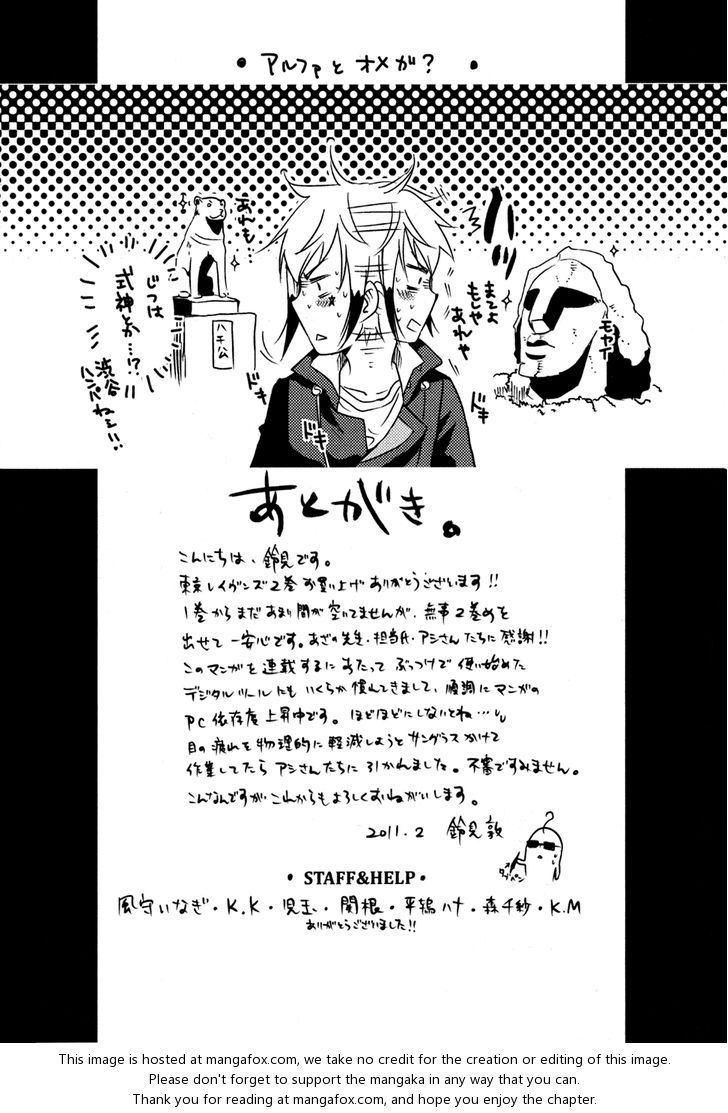 ・アルファとオメガ？・
ハッ
まてよ
もしや
あれや
モヤイ
あれも…
じつは
式神とか…!?
渋谷
ハンパねェ!!
ハチ公
ドキ
ドキ
ドキ
あとがき。
こんにちは、鈴見です。
東京レイヴンズ2巻お買い上げありがとうございます!!
1巻からまだあまり間が空いてませんが、無事2巻めを
出せて一安心です。あざの先生・担当氏・アシさんたちに感謝!!
このマンガを連載するにあたってぶっつけで使い始めた
デジタルツールにもいくらか慣れてきまして、順調にマンガの
PC依存度上昇中です。ほどほどにしないとね…
目の疲れを物理的に軽減しようとサングラスかけて
作業してたらアシさんたちに引かれました。不審ですみません。
こんなんですが、これからもよろしくおねがいします。
2011.2 鈴見敦
タブペン
・STAFF&HELP・
風守いなぎ・K.K・児玉・関根・平鴇ハナ・森千紗・K.M
ありがとうございました!!
This image is hosted at mangafox.com, we take no credit for the creation or editing of this image.
Please don't forget to support the mangaka in any way that you can.
Thank you for reading at mangafox.com, and hope you enjoy the chapter.